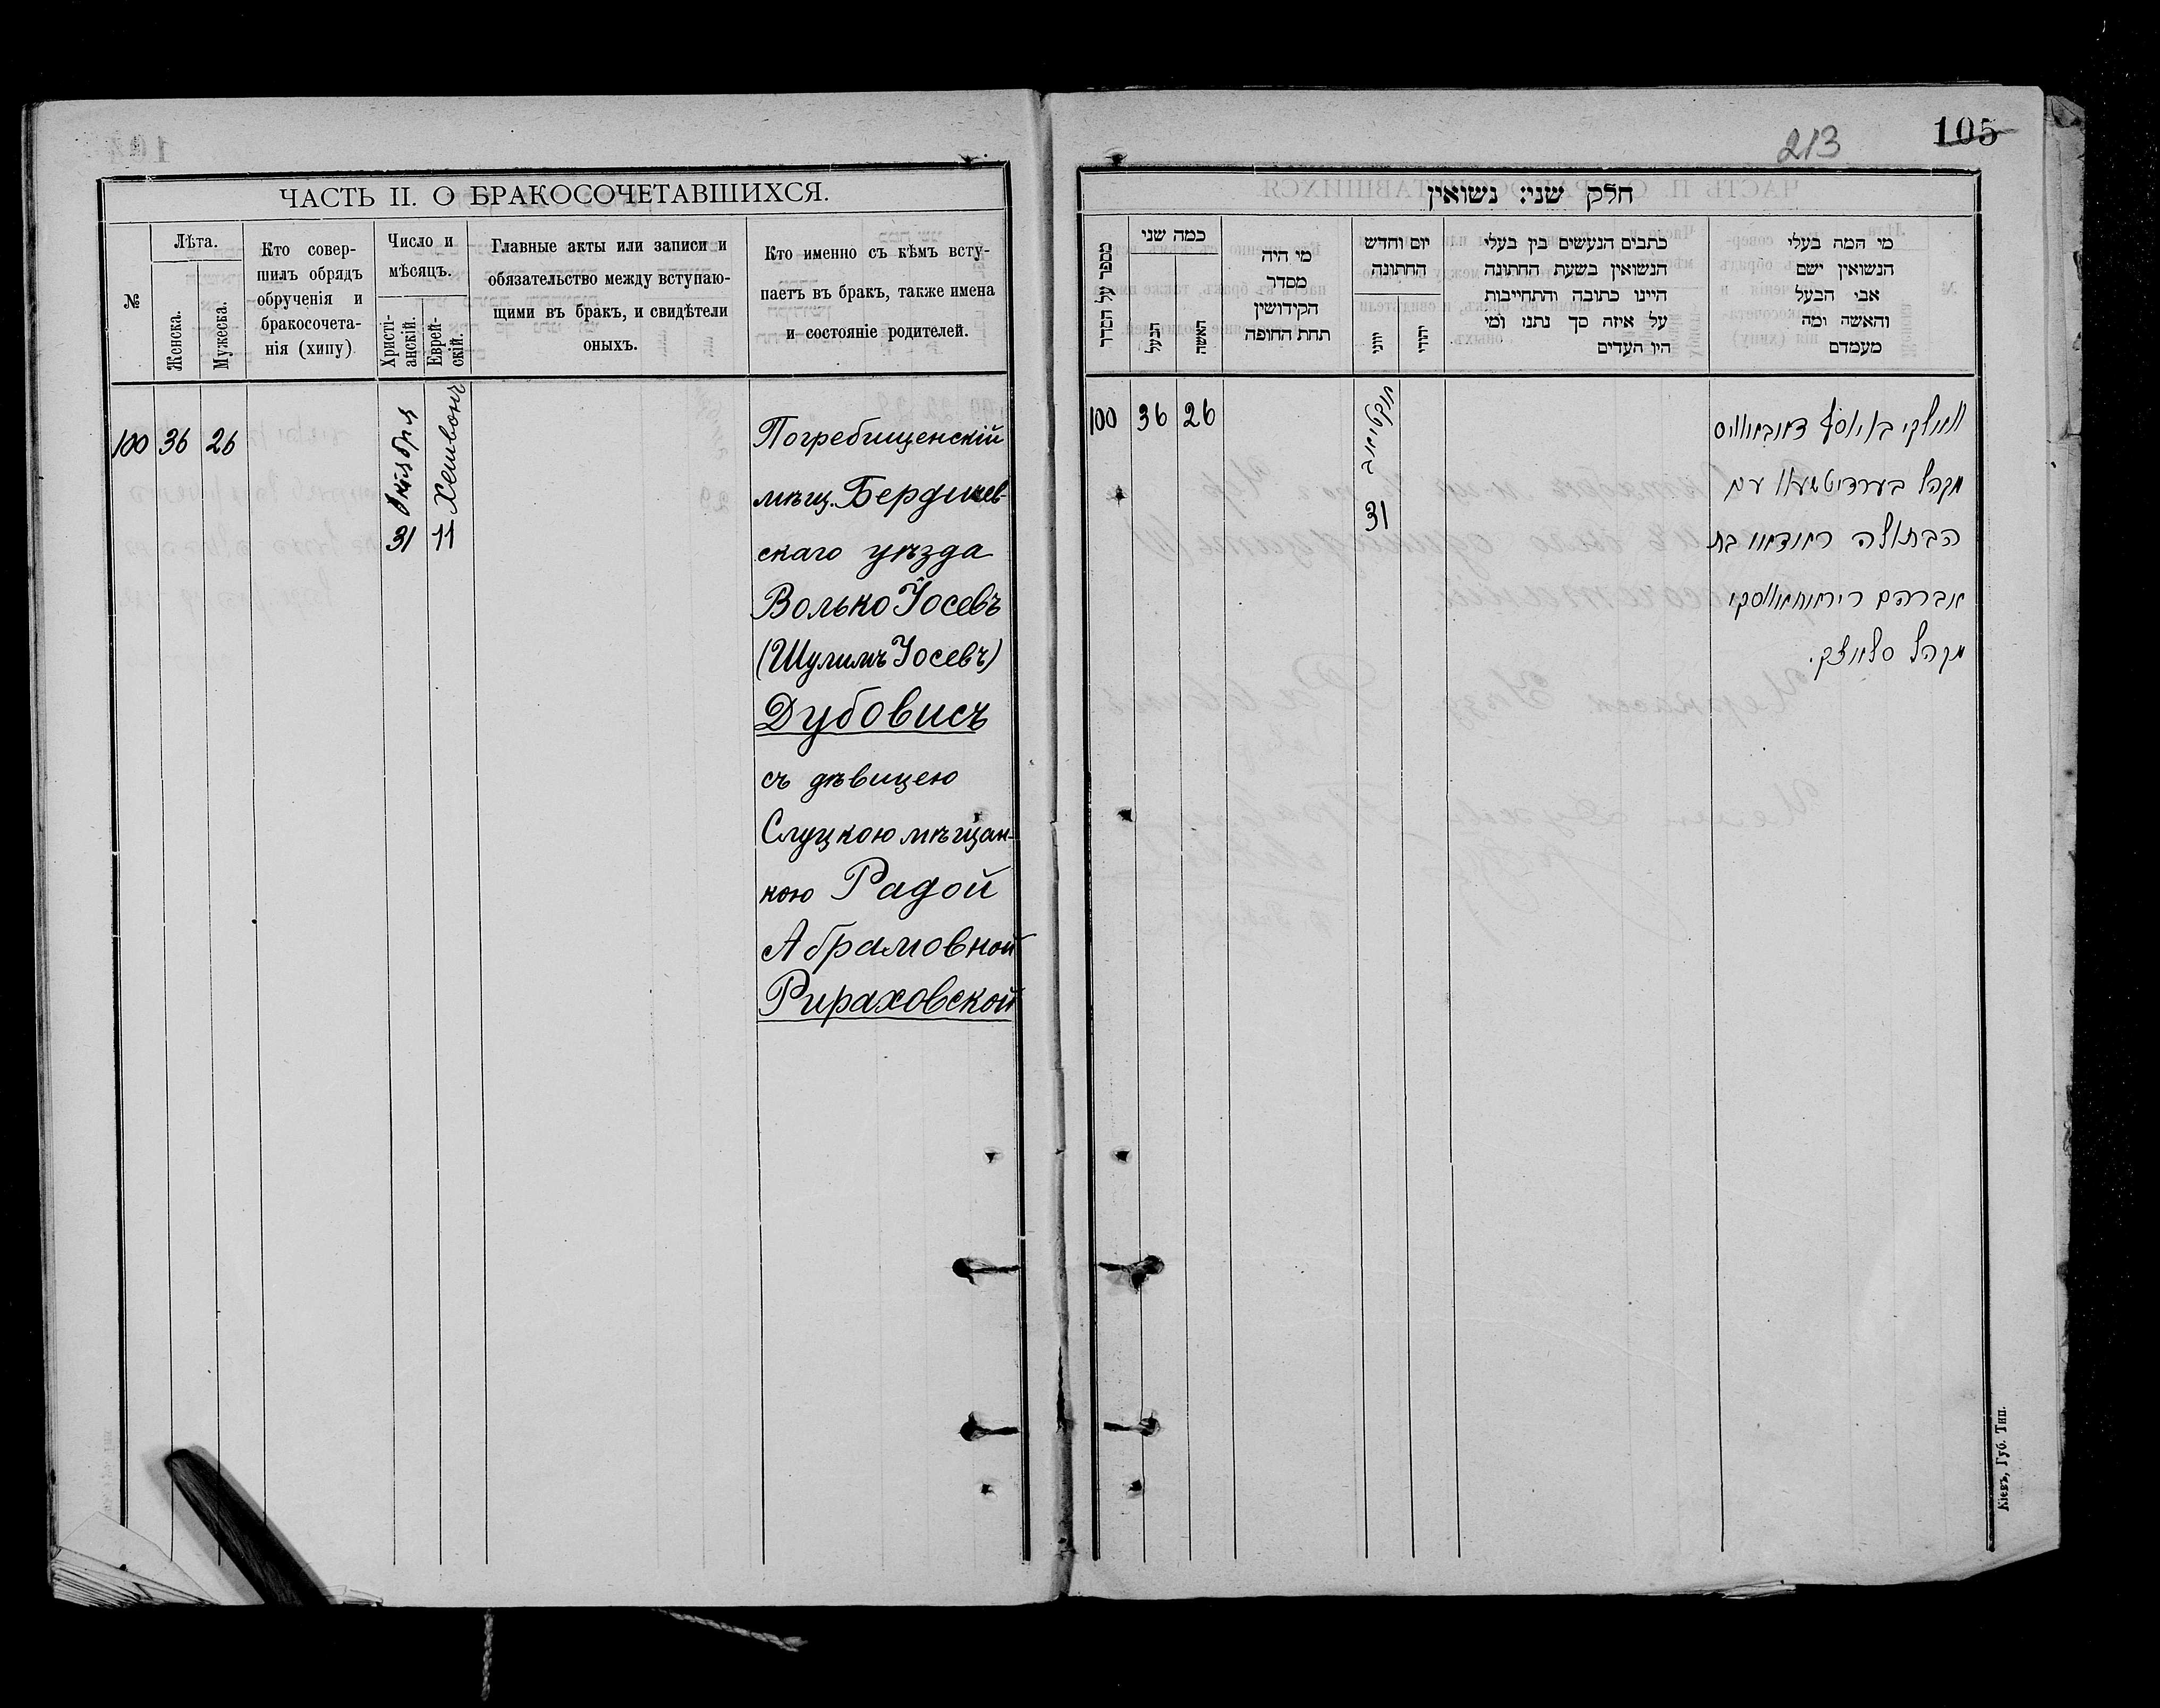 ЧАСТЬ II. О БРАКОСОЧЕТАВШИХСЯ.
№
Лѣта.
Женска.
Мужеска.
Кто совер-
шилъ обрядъ
обрученія и
бракосочета-
нія (хипу)
Число и
мѣсяцъ.
Христі-
анскій.
Еврей-
скій.
Главные акты или записи и
обязательство между вступаю-
щими въ бракъ, и свидѣтели
оныхъ.
Кто именно съ кѣмъ всту-
паетъ въ бракъ, также имена
и состояніе родителей.
100 36 26
Октября
31
Хешвонъ
11
Погребищенскій
мѣщ. Бердичев-
скаго уѣзда
Волько Іосевъ
(Шулимъ Іосевъ)
Дубовисъ
съ дѣвицею
Слуцкою мѣщан-
кою Радой
Абрамовной
Рираховской
213
105
חלק שני: נשואין
מספר על הסדר
כמה שני
הבעל
האשה
מי היה
מסדר
הקידושין
תחת החופה
יום וחדש
החתונה
יוני
יהודי
כתבים הנעשים בין בעלי
הנשואין בשעת החתונה
היינו כתובה והתחייבות
על איזה סך נתנו ומי
היו העדים
מי המה בעלי
הנשואין ושם
אבי הבעל
והאשה ומה
מעמדם
100 36 26
31
בן יוסף
מקהל עם
הבתולה בת
אברהם
מקהל
Кіевъ, Губ. Тип.